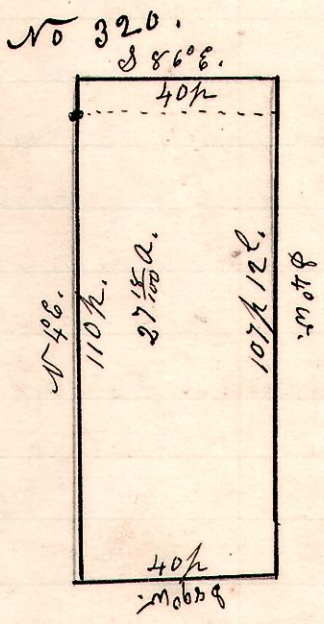 No 320.
S 86° E.
40p
N 4° E.
110 p.
27 18/100 a.
107p 12l.
S 4° W.
40p
S 89° W.